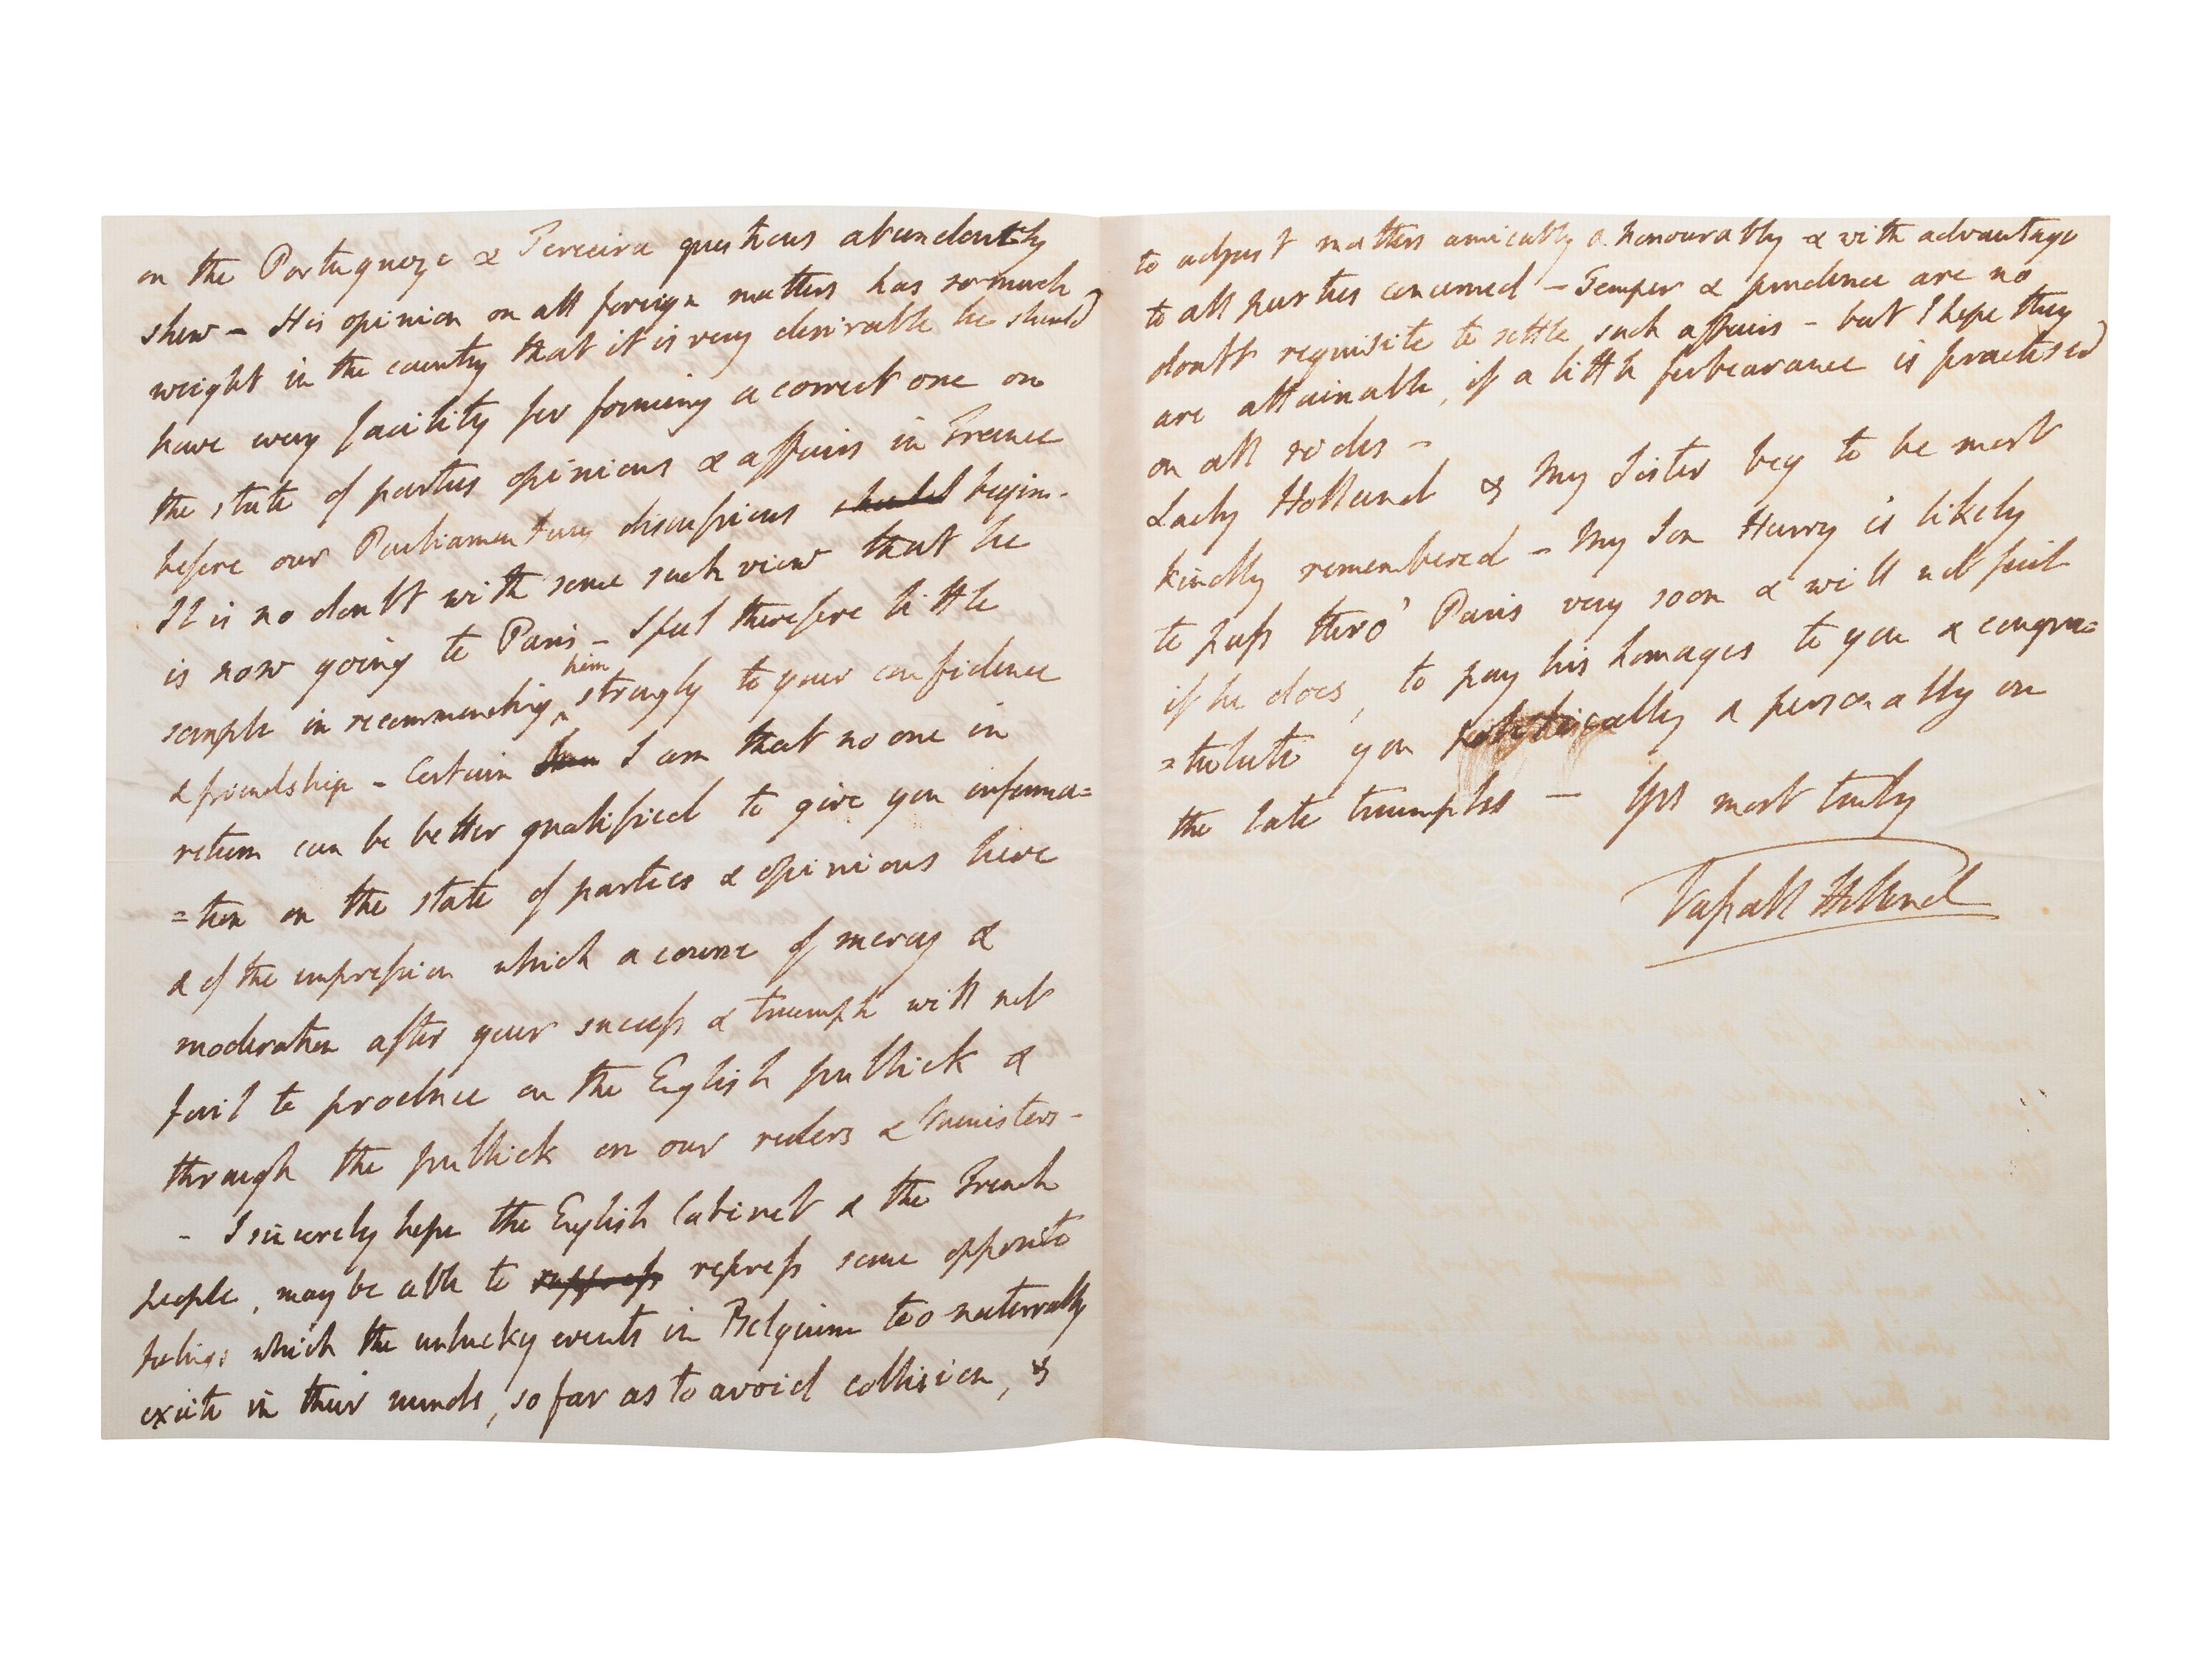 on the Portugueze & Terceira questions abundantly
shew – His opinion on all foreign matters has so much
weight in the country that it is very desirable he should
have every facility for forming a correct one on
the state of parties opinions & affairs in France
before our Parliamentary discussions should begin –
It is no doubt with some such view that he
is now going to Paris – I feel therefore little
scruple in recommending him strongly to your confidence
& friendship – Certain I am that no one in
return can be better qualified to give you informa=
=tion on the state of parties & opinions here
& of the impression which a course of mercy &
moderation after your success & triumph will not
fail to produce on the English publick &
through the publick on our rulers & Ministers –
– I sincerely hope the English Cabinet & the French
people, may be able to suppress repress some opposite
feelings which the unlucky events in Belgium too naturally
excite in their minds, so far as to avoid collision, &
to adjust matters amicably & honourably & with advantage
to all parties concerned – Temper & prudence are no
doubt requisite to settle such affairs – but I hope they
are attainable, if a little forbearance is practised
on all sides –
Lady Holland & My Sister beg to be most
kindly remembered – My Son Henry is likely
to pass thro' Paris very soon & will not fail
if he does, to pay his homages to you & congra=
=tulate you politically & personally on
the late triumphs – Yrs most truly
Vassall Holland